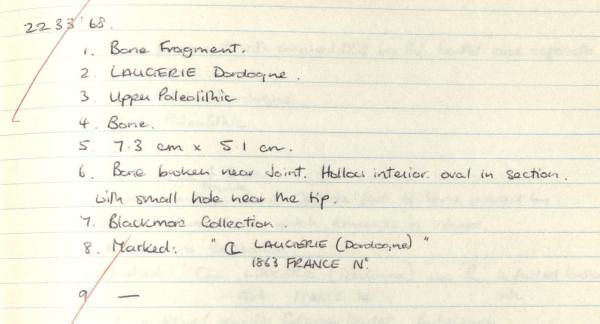 2233'68.
1. Bone Fragment.
2. LAUGERIE Dordogne.
3. Upper Paleolithic
4. Bone.
5. 7.3 cm x 5.1 cm.
6. Bone broken near joint. Hollow interior. oval in section.
with small hole near the tip.
7. Blackmore Collection.
8. Marked: " LAUGERIE (Dordogne) "
1863 FRANCE Nº
9 —